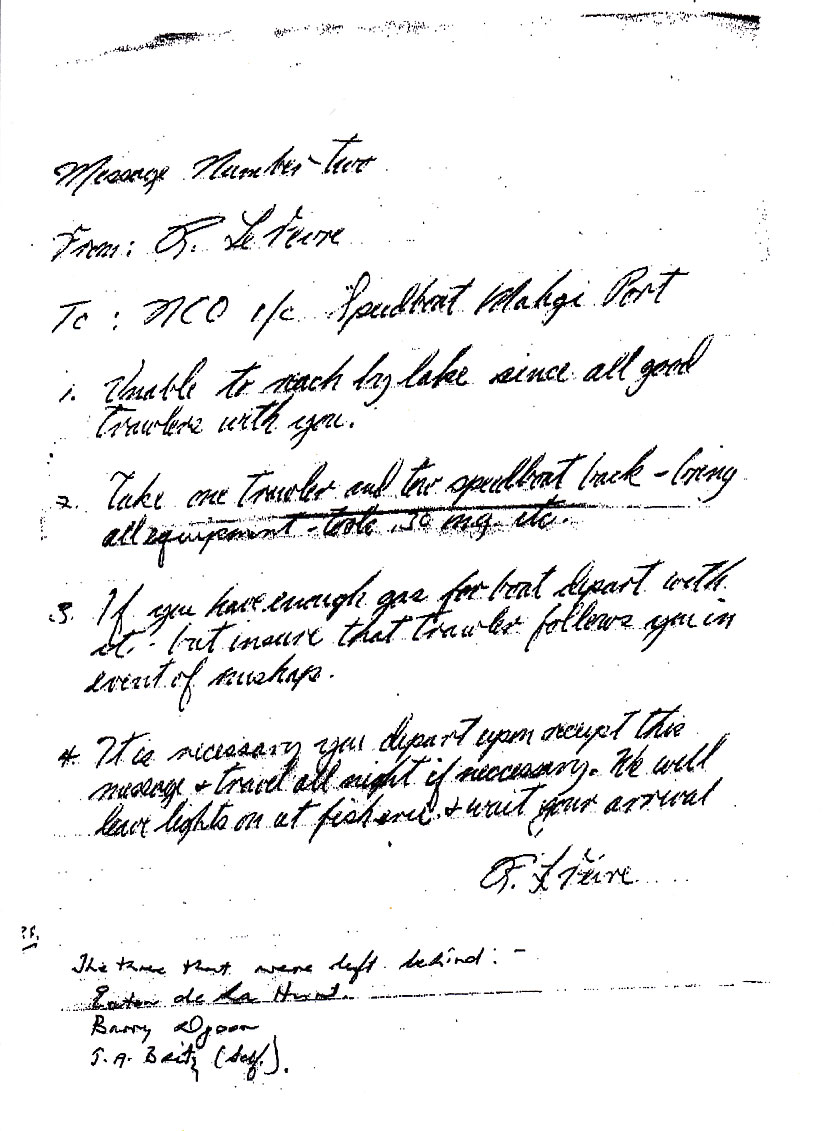 Message Number two
From: R. Le Feivre
To: NCO i/c Speedboat Mahgi Port
1. Unable to reach by lake since all good
trawlers with you.
2. Take one trawler and tow speedboat back - bring
all equipment - tools .30 mg. etc.
3. If you have enough gas for boat depart with
it - but insure that trawler follows you in
event of mishaps.
4. It is necessary you depart upon receipt this
message + travel all night if neccessary. We will
leave lights on at + wait your arrival
R. Le Feivre
P.S.
The three that were left behind: -
de la Hunt.
Barry
J.A. Britz (Self).